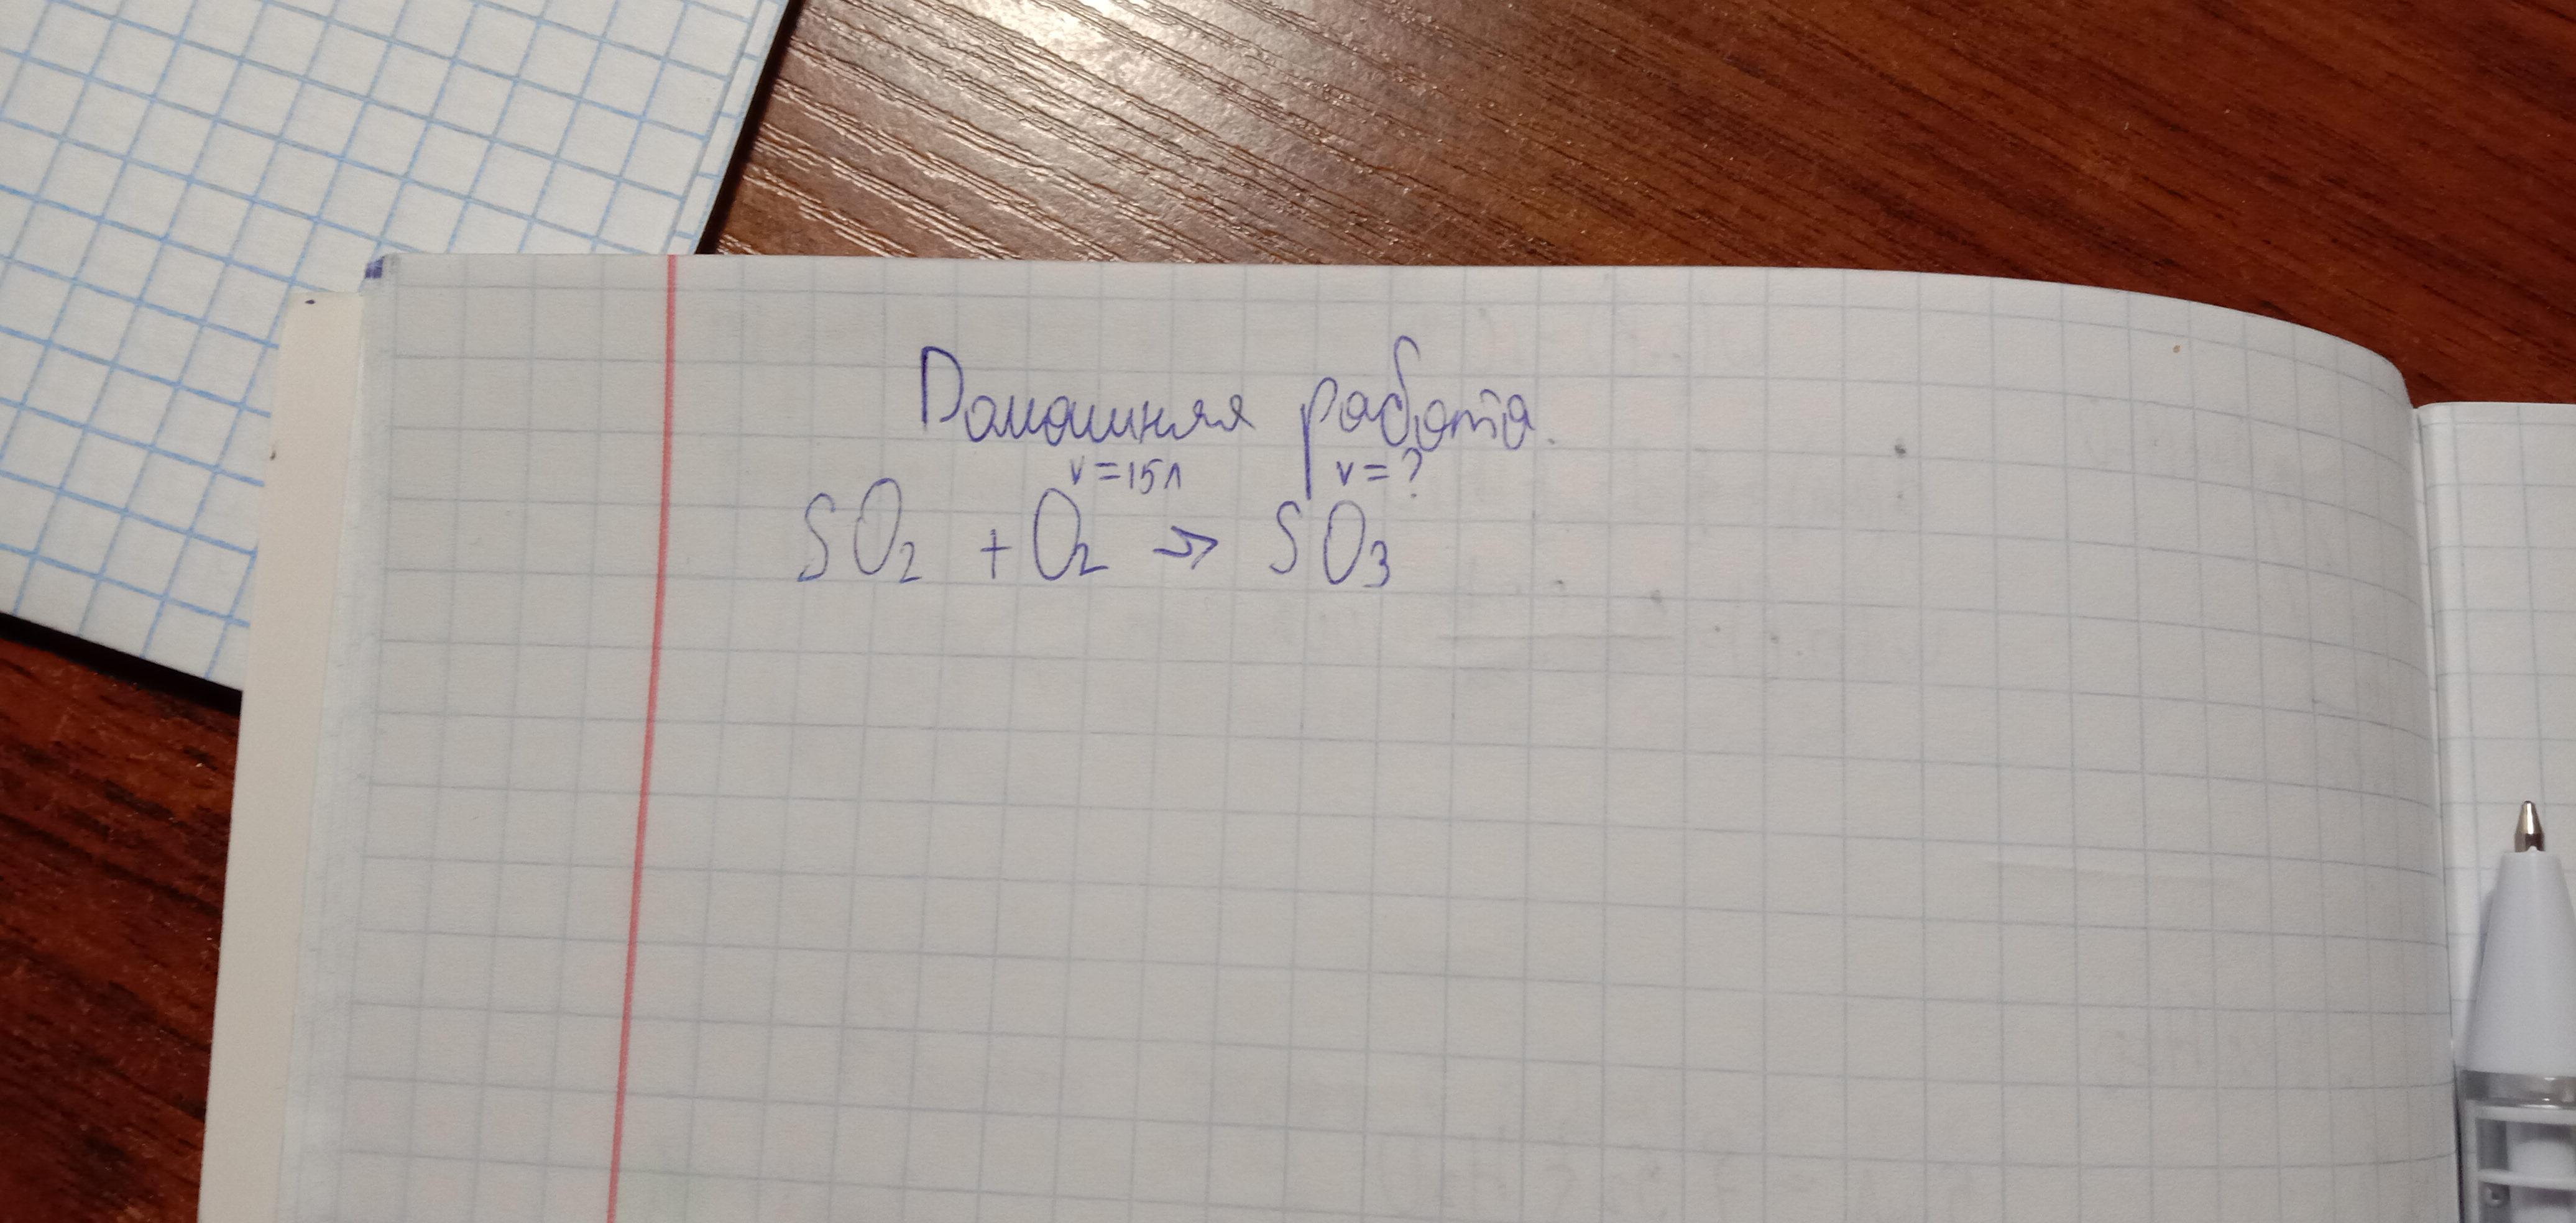 Домашняя работа.
v=15л v=?
SO₂ + O₂ → SO₃